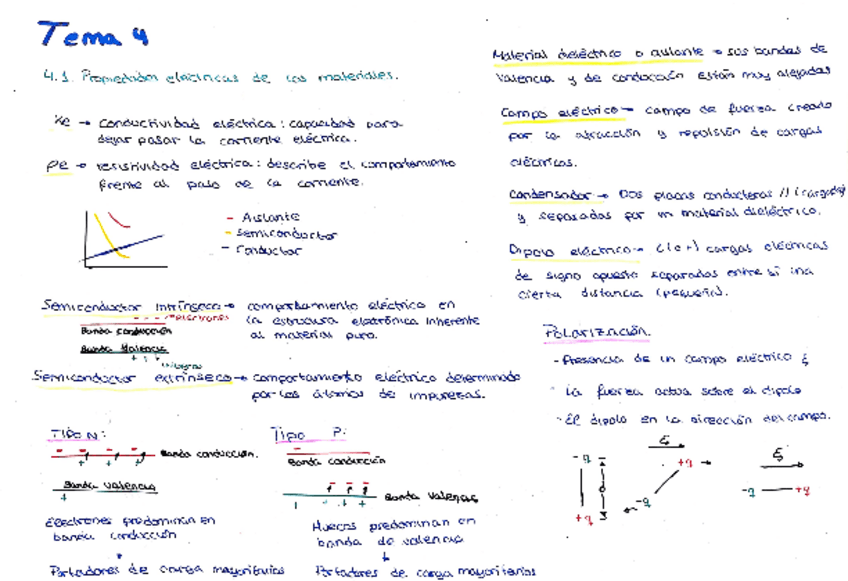 Tema 4
4.1. Propiedades eléctricas de los materiales.
Ke → conductividad eléctrica: capacidad para
dejar pasar la corriente eléctrica.
ρe → resistividad eléctrica: describe el comportamiento
frente al paso de la corriente.
- Aislante
- Semiconductor
- Conductor
Semiconductor intrínseco → comportamiento eléctrico en
la estructura electrónica inherente
al material puro.
electrones
Banda conducción
Banda Valencia
Semiconductor extrínseco → comportamiento eléctrico determinado
por los átomos de impurezas.
TIPO N:
Banda conducción.
Banda valencia
Electrones predominan en
banda conducción
Portadores de carga mayoritarios
Tipo P:
Banda conducción
Banda Valencia
Huecos predominan en
banda de valencia
Portadores de carga mayoritarios
Material dieléctrico o aislante → sus bandas de
valencia y de conducción están muy alejadas
Campo eléctrico → campo de fuerza creado
por la atracción y repulsión de cargas
eléctricas.
Condensador → Dos placas conductoras // (cargadas)
y separadas por un material dieléctrico.
Dipolo eléctrico → cargas eléctricas
de signo opuesto separadas entre sí una
cierta distancia (pequeña).
Polarización.
- Presencia de un campo eléctrico ξ
- La fuerza actúa sobre el dipolo
- El dipolo en la dirección del campo.
-q
+q
ξ
+q
-q
ξ
-q +q